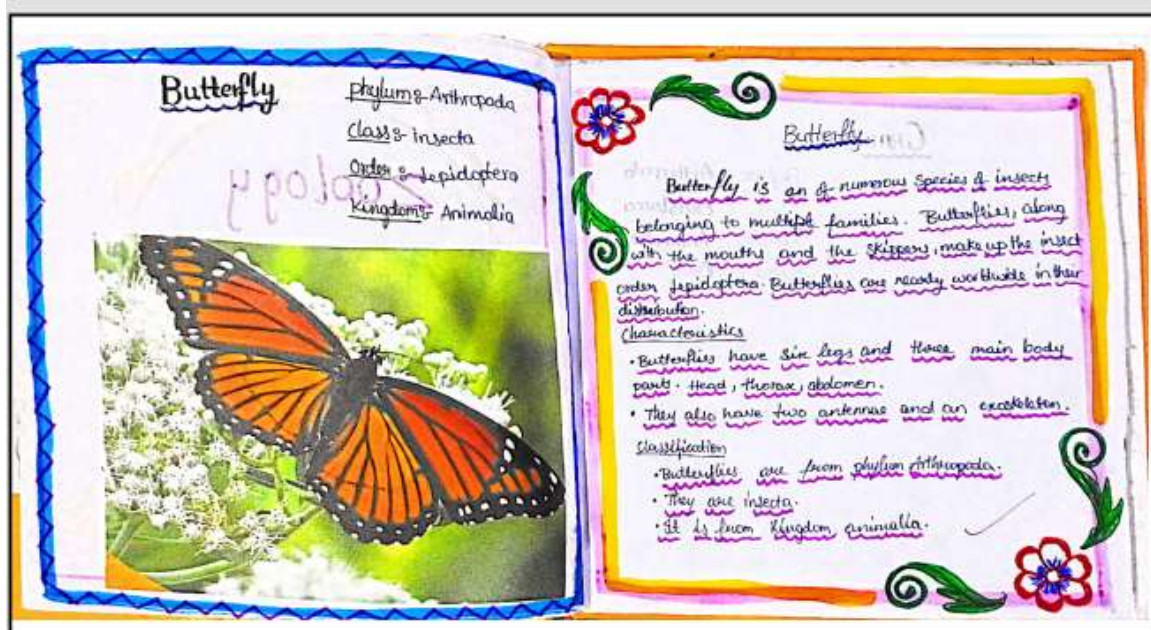 Butterfly
phylum :- Arthropoda
Class :- insecta
Order :- Lepidoptera
Kingdom :- Animalia
Zoology
Butterfly
Butterfly is an of numerous species of insects
belonging to multiple families. Butterflies, along
with the mouths and the skippers, make up the insect
order Lepidoptera. Butterflies are nearly worldwide in their
distribution.
Characteristics
• Butterflies have six legs and three main body
parts. Head, thorax, abdomen.
• They also have two antennae and an exoskeleton.
Classification
• Butterflies are from phylum Arthropoda.
• They are insecta.
• It is from Kingdom animalia.